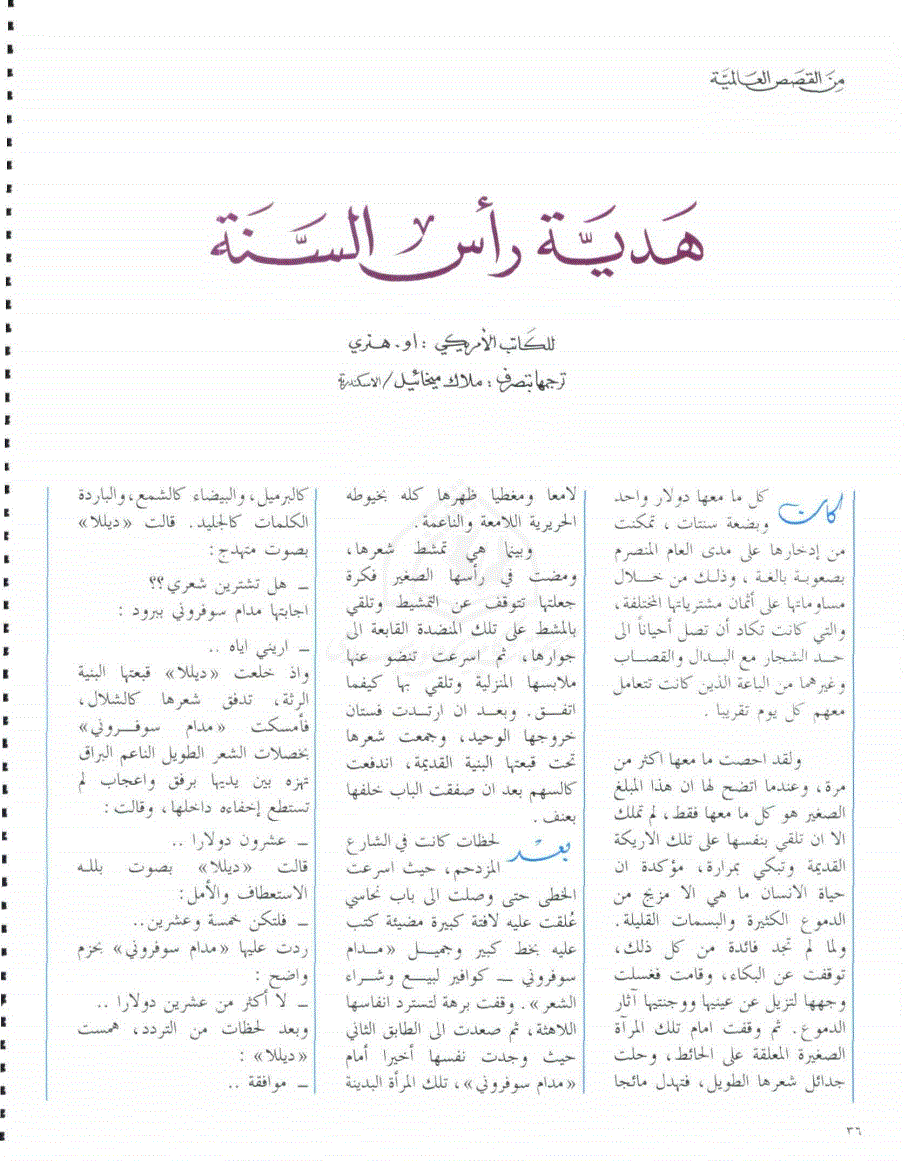 مِنَ القصَصِ العَالميَّة
هَديَّة رأس السَّنَة
للكَاتب الأمريكي : او. هنري
ترجمها بتصرف : ملاك ميخائيل / الاسكندرية
كان كل ما معها دولار واحد
وبضعة سنتات ، تمكنت
من إدخارها على مدى العام المنصرم
بصعوبة بالغة ، وذلك من خلال
مساوماتها على أثمان مشترياتها المختلفة،
والتي كانت تكاد أن تصل أحياناً الى
حد الشجار مع البدال والقصاب
وغيرهما من الباعة الذين كانت تتعامل
معهم كل يوم تقريبا .
ولقد احصت ما معها اكثر من
مرة، وعندما اتضح لها ان هذا المبلغ
الصغير هو كل ما معها فقط، لم تملك
الا ان تلقي بنفسها على تلك الاريكة
القديمة وتبكي بمرارة، مؤكدة ان
حياة الانسان ما هي الا مزيج من
الدموع الكثيرة والبسمات القليلة.
ولما لم تجد فائدة من كل ذلك،
توقفت عن البكاء، وقامت فغسلت
وجهها لتزيل عن عينيها ووجنتيها آثار
الدموع. ثم وقفت امام تلك المرآة
الصغيرة المعلقة على الحائط، وحلت
جدائل شعرها الطويل، فتهدل مائجا
لامعا ومغطيا ظهرها كله بخيوطه
الحريرية اللامعة والناعمة.
وبينما هي تمشط شعرها،
ومضت في رأسها الصغير فكرة
جعلتها تتوقف عن التمشيط وتلقي
بالمشط على تلك المنضدة القابعة الى
جوارها، ثم اسرعت تنضو عنها
ملابسها المنزلية وتلقي بها كيفما
اتفق. وبعد ان ارتدت فستان
خروجها الوحيد، وجمعت شعرها
تحت قبعتها البنية القديمة، اندفعت
كالسهم بعد ان صفقت الباب خلفها
بعنف .
بعد لحظات كانت في الشارع
المزدحم، حيث اسرعت
الخطى حتى وصلت الى باب نحاسي
عُلقت عليه لافتة كبيرة مضيئة كتب
عليه بخط كبير وجميل «مدام
سوفروني ـ كوافير لبيع وشراء
الشعر». وقفت برهة لتسترد انفاسها
اللاهثة، ثم صعدت الى الطابق الثاني
حيث وجدت نفسها أخيرا أمام
«مدام سوفروني»، تلك المرأة البدينة
كالبرميل، والبيضاء كالشمع، والباردة
الكلمات كالجليد. قالت «ديللا»
بصوت متهدج:
ـ هل تشترين شعري؟؟
اجابتها مدام سوفروني ببرود :
ـ اريني اياه ..
واذ خلعت «ديللا» قبعتها البنية
الرثة، تدفق شعرها كالشلال،
فأمسكت «مدام سوفروني»
بخصلات الشعر الطويل الناعم البراق
تهزه بين يديها برفق واعجاب لم
تستطع إخفاءه داخلها، وقالت:
ـ عشرون دولارا ..
قالت «ديللا» بصوت بلله
الاستعطاف والأمل:
ـ فلتكن خمسة وعشرين..
ردت عليها «مدام سوفروني» بحزم
واضح :
ـ لا أكثر من عشرين دولارا ..
وبعد لحظات من التردد، همست
«ديللا» :
ـ موافقة ..
٣٦